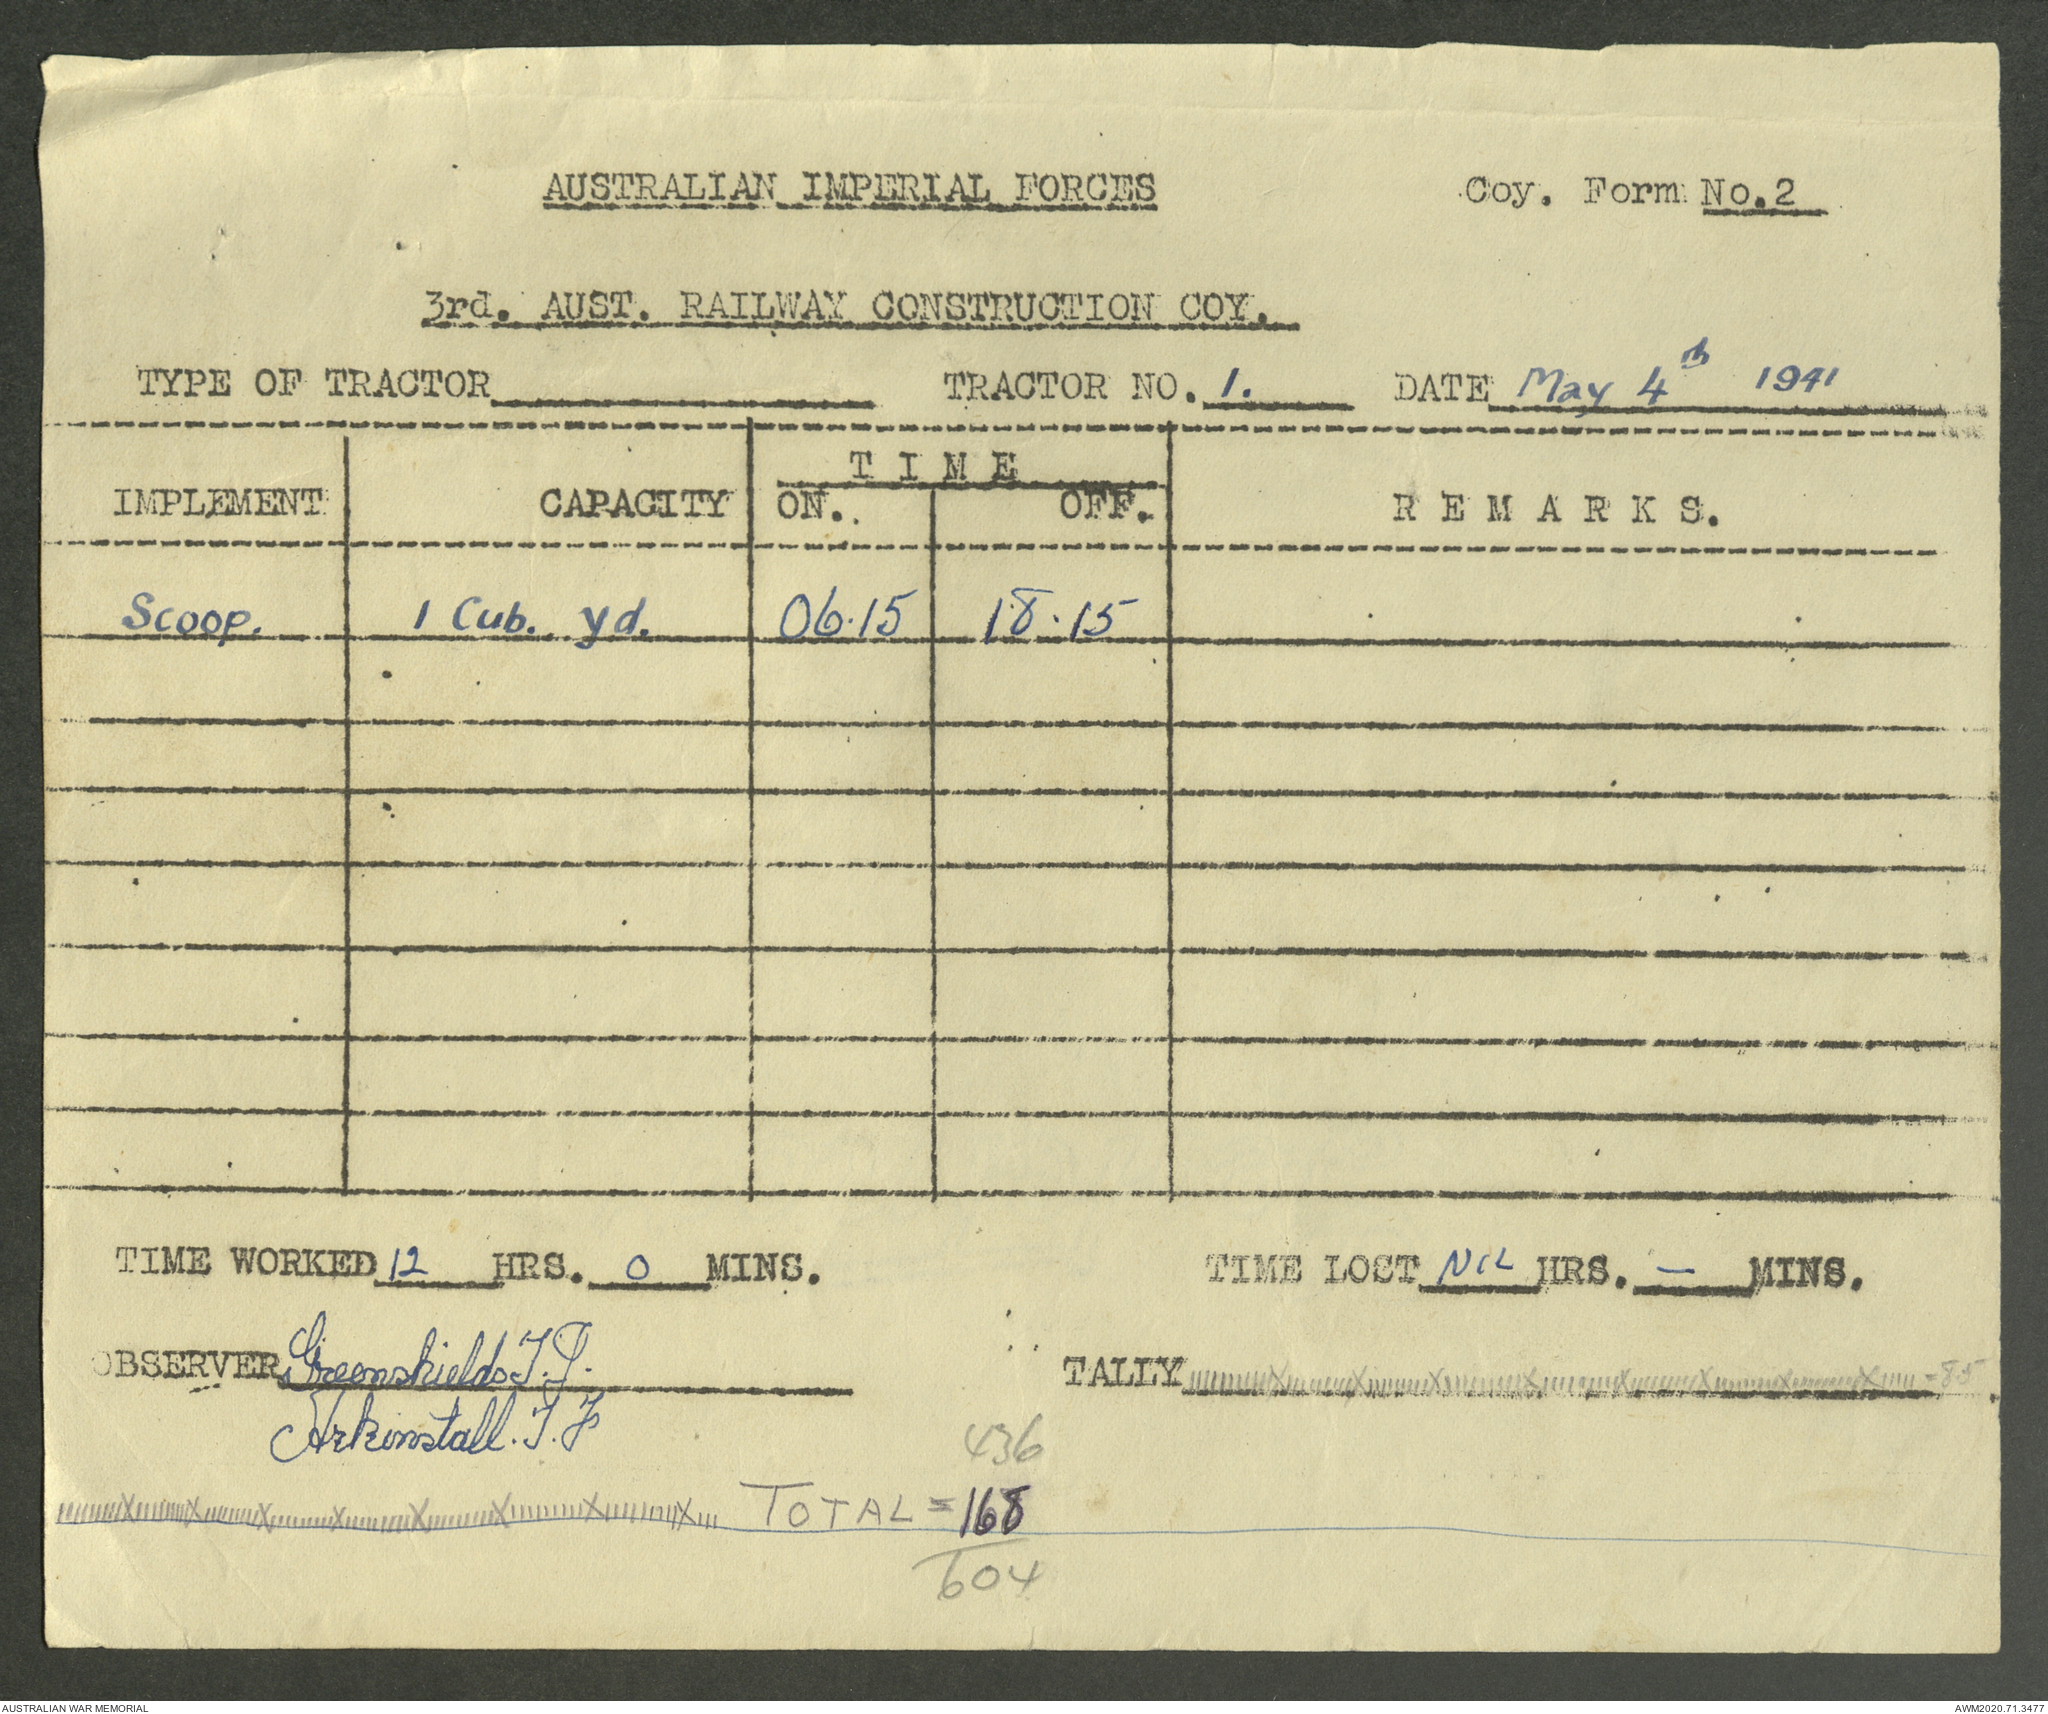 AUSTRALIAN IMPERIAL FORCES Coy. Form No.2
3rd. AUST. RAILWAY CONSTRUCTION COY.
TYPE OF TRACTOR TRACTOR NO. 1. DATE May 4th 1941
T I M E
IMPLEMENT CAPACITY ON. OFF. R E M A R K S.
Scoop. 1 Cub. yd. 06.15 18.15
TIME WORKED 12 HRS. 0 MINS. TIME LOST NIL HRS. — MINS.
OBSERVER Greenshields T.J. TALLY = 85
Arkinstall. T. J
436
TOTAL = 168
604
AUSTRALIAN WAR MEMORIAL AWM2020.71.3477